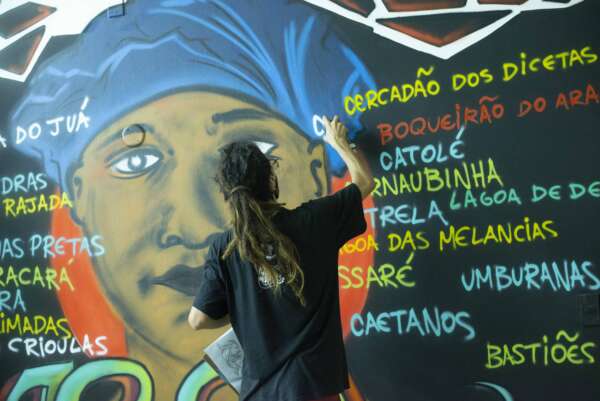 DO JUÁ
DRAS
RAJADA
AS PRETAS
RACARÁ
RA
IMADAS
CRIOULAS
CERCADÃO DOS DICETAS
BOQUEIRÃO DO ARA
CATOLÉ
RNAUBINHA
TRELA
LAGOA DE DE
GOA DAS MELANCIAS
SSARÉ
UMBURANAS
CAETANOS
BASTIÕES